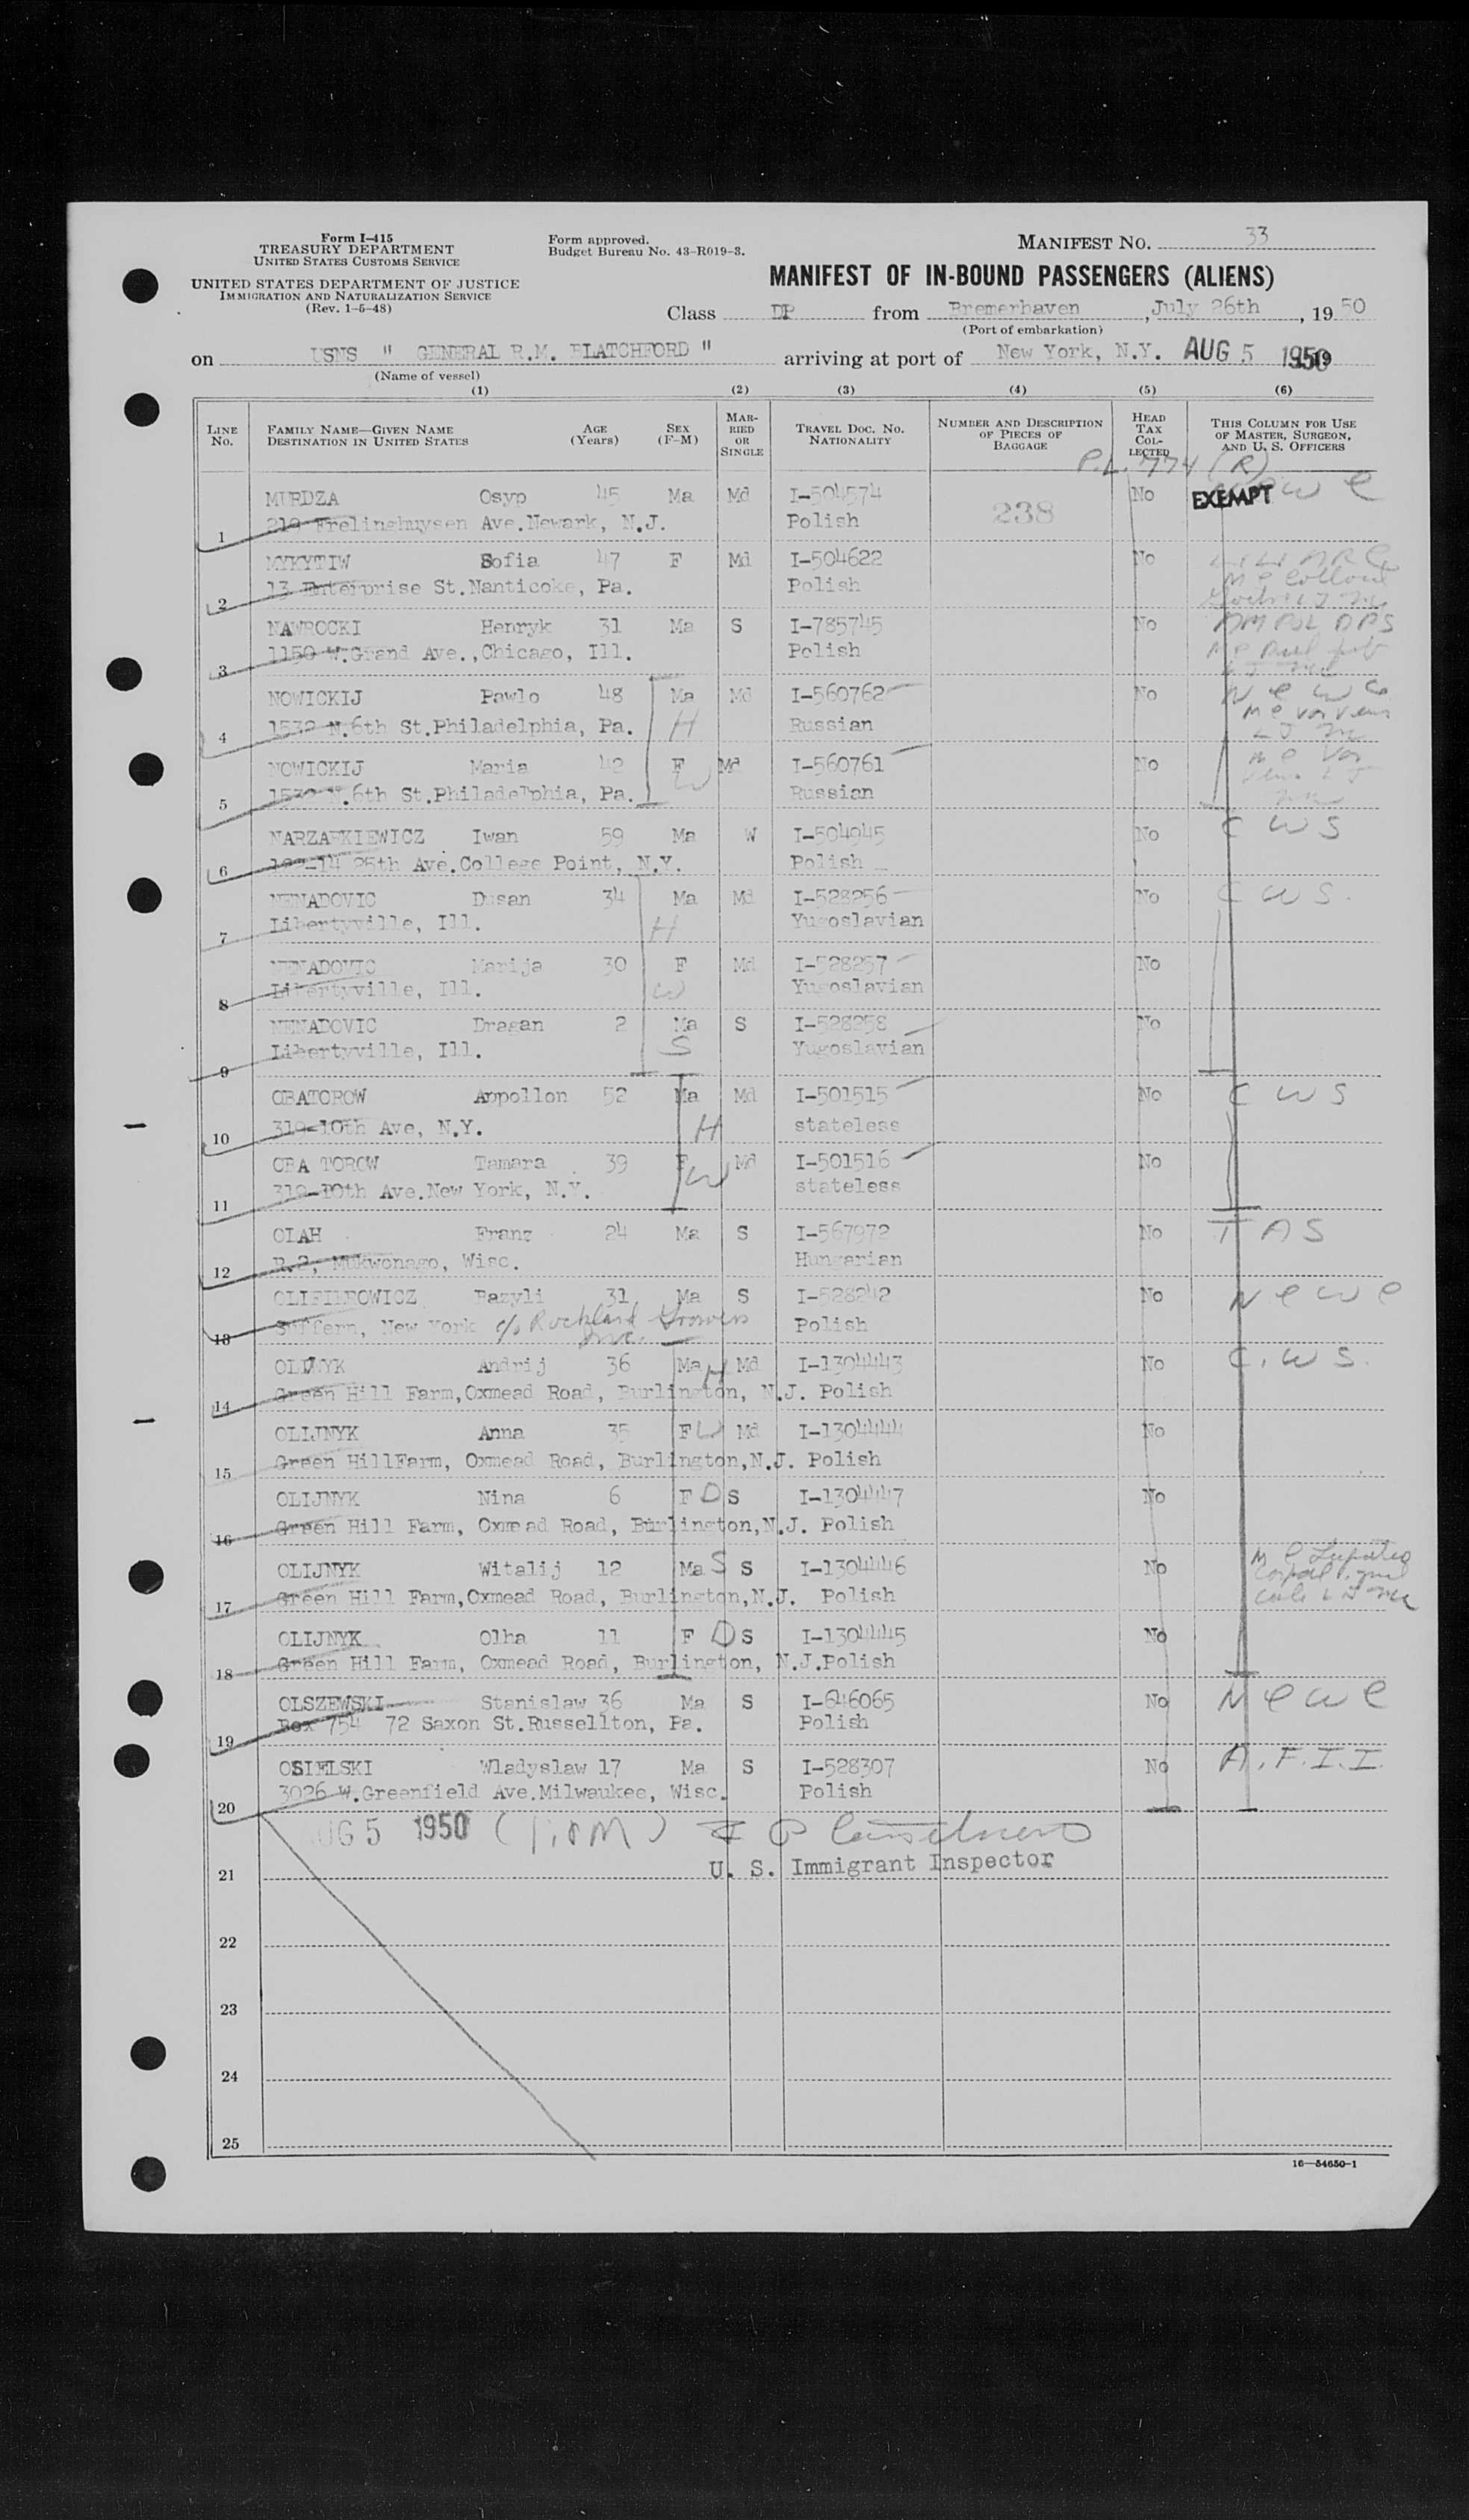 Form I-415
TREASURY DEPARTMENT
UNITED STATES CUSTOMS SERVICE
UNITED STATES DEPARTMENT OF JUSTICE
IMMIGRATION AND NATURALIZATION SERVICE
(Rev. 1-5-48)
Form approved.
Budget Bureau No. 43-R019-3.
MANIFEST NO. 33
MANIFEST OF IN-BOUND PASSENGERS (ALIENS)
Class DP from Bremerhaven, July 26th, 1950
(Port of embarkation)
on USNS " GENERAL R.M. BLATCHFORD " arriving at port of New York, N.Y. AUG 5 1950
(Name of vessel)
(1) (2) (3) (4) (5) (6)
LINE NO. FAMILY NAME—GIVEN NAME DESTINATION IN UNITED STATES AGE (Years) SEX (F-M) MARRIED OR SINGLE TRAVEL DOC. NO. NATIONALITY NUMBER AND DESCRIPTION OF PIECES OF BAGGAGE HEAD TAX COLLECTED THIS COLUMN FOR USE OF MASTER, SURGEON, AND U. S. OFFICERS
P.L. 774 (R)
MURDZA Osyp 45 Ma Md I-504574 No EXEMPT
1 219 Frelinghuysen Ave.Newark, N.J. Polish 238
MYKYTIW Sofia 47 F Md I-504622 No
2 13 Enterprise St.Nanticoke, Pa. Polish
NAWROCKI Henryk 31 Ma S I-785745 No
3 1150 W.Grand Ave.,Chicago, Ill. Polish
NOWICKIJ Pawlo 48 Ma Md I-560762 No
4 1532 N.6th St.Philadelphia, Pa. H Russian
NOWICKIJ Maria 42 F Md I-560761 No
5 1532 N.6th St.Philadelphia, Pa. W Russian
NARZARKIEWICZ Iwan 59 Ma W I-504945 No C W S
6 25th Ave.College Point, N.Y. Polish
NENADOVIC Dusan 34 Ma Md I-528256 No C W S.
7 Libertyville, Ill. H Yugoslavian
NENADOVIC Marija 30 F Md I-528257 No
8 Libertyville, Ill. W Yugoslavian
NENADOVIC Dragan 2 Ma S I-528258 No
9 Libertyville, Ill. S Yugoslavian
OBATOROW Appollon 52 Ma Md I-501515 No C W S
10 319-10th Ave, N.Y. H stateless
OBA TOROW Tamara 39 F W Md I-501516 No
11 319-10th Ave.New York, N.Y. stateless
OLAH Franz 24 Ma S I-567972 No T A S
12 R.2, Mukwonago, Wisc. Hungarian
OLIFIEROWICZ Bazyli 31 Ma S I-528242 No N C W C
13 Suffern, New York c/o Rockland Growers Inc. Polish
OLIJNYK Andrij 36 Ma H Md I-1304443 No C. W S.
14 Green Hill Farm,Oxmead Road, Burlington, N.J. Polish
OLIJNYK Anna 35 F W Md I-1304444 No
15 Green HillFarm, Oxmead Road, Burlington,N.J. Polish
OLIJNYK Nina 6 F D S I-1304447 No
16 Green Hill Farm, Oxmead Road, Burlington,N.J. Polish
OLIJNYK Witalij 12 Ma S S I-1304446 No
17 Green Hill Farm,Oxmead Road, Burlington,N.J. Polish
OLIJNYK Olha 11 F D S I-1304445 No
18 Green Hill Farm, Oxmead Road, Burlington, N.J.Polish
OLSZEWSKI Stanislaw 36 Ma S I-646065 No N C W C
19 Box 754 72 Saxon St.Russellton, Pa. Polish
OSIELSKI Wladyslaw 17 Ma S I-528307 No A.F.I.I.
20 3026 W.Greenfield Ave.Milwaukee, Wisc. Polish
AUG 5 1950
21 U. S. Immigrant Inspector
22
23
24
25
16—54650-1